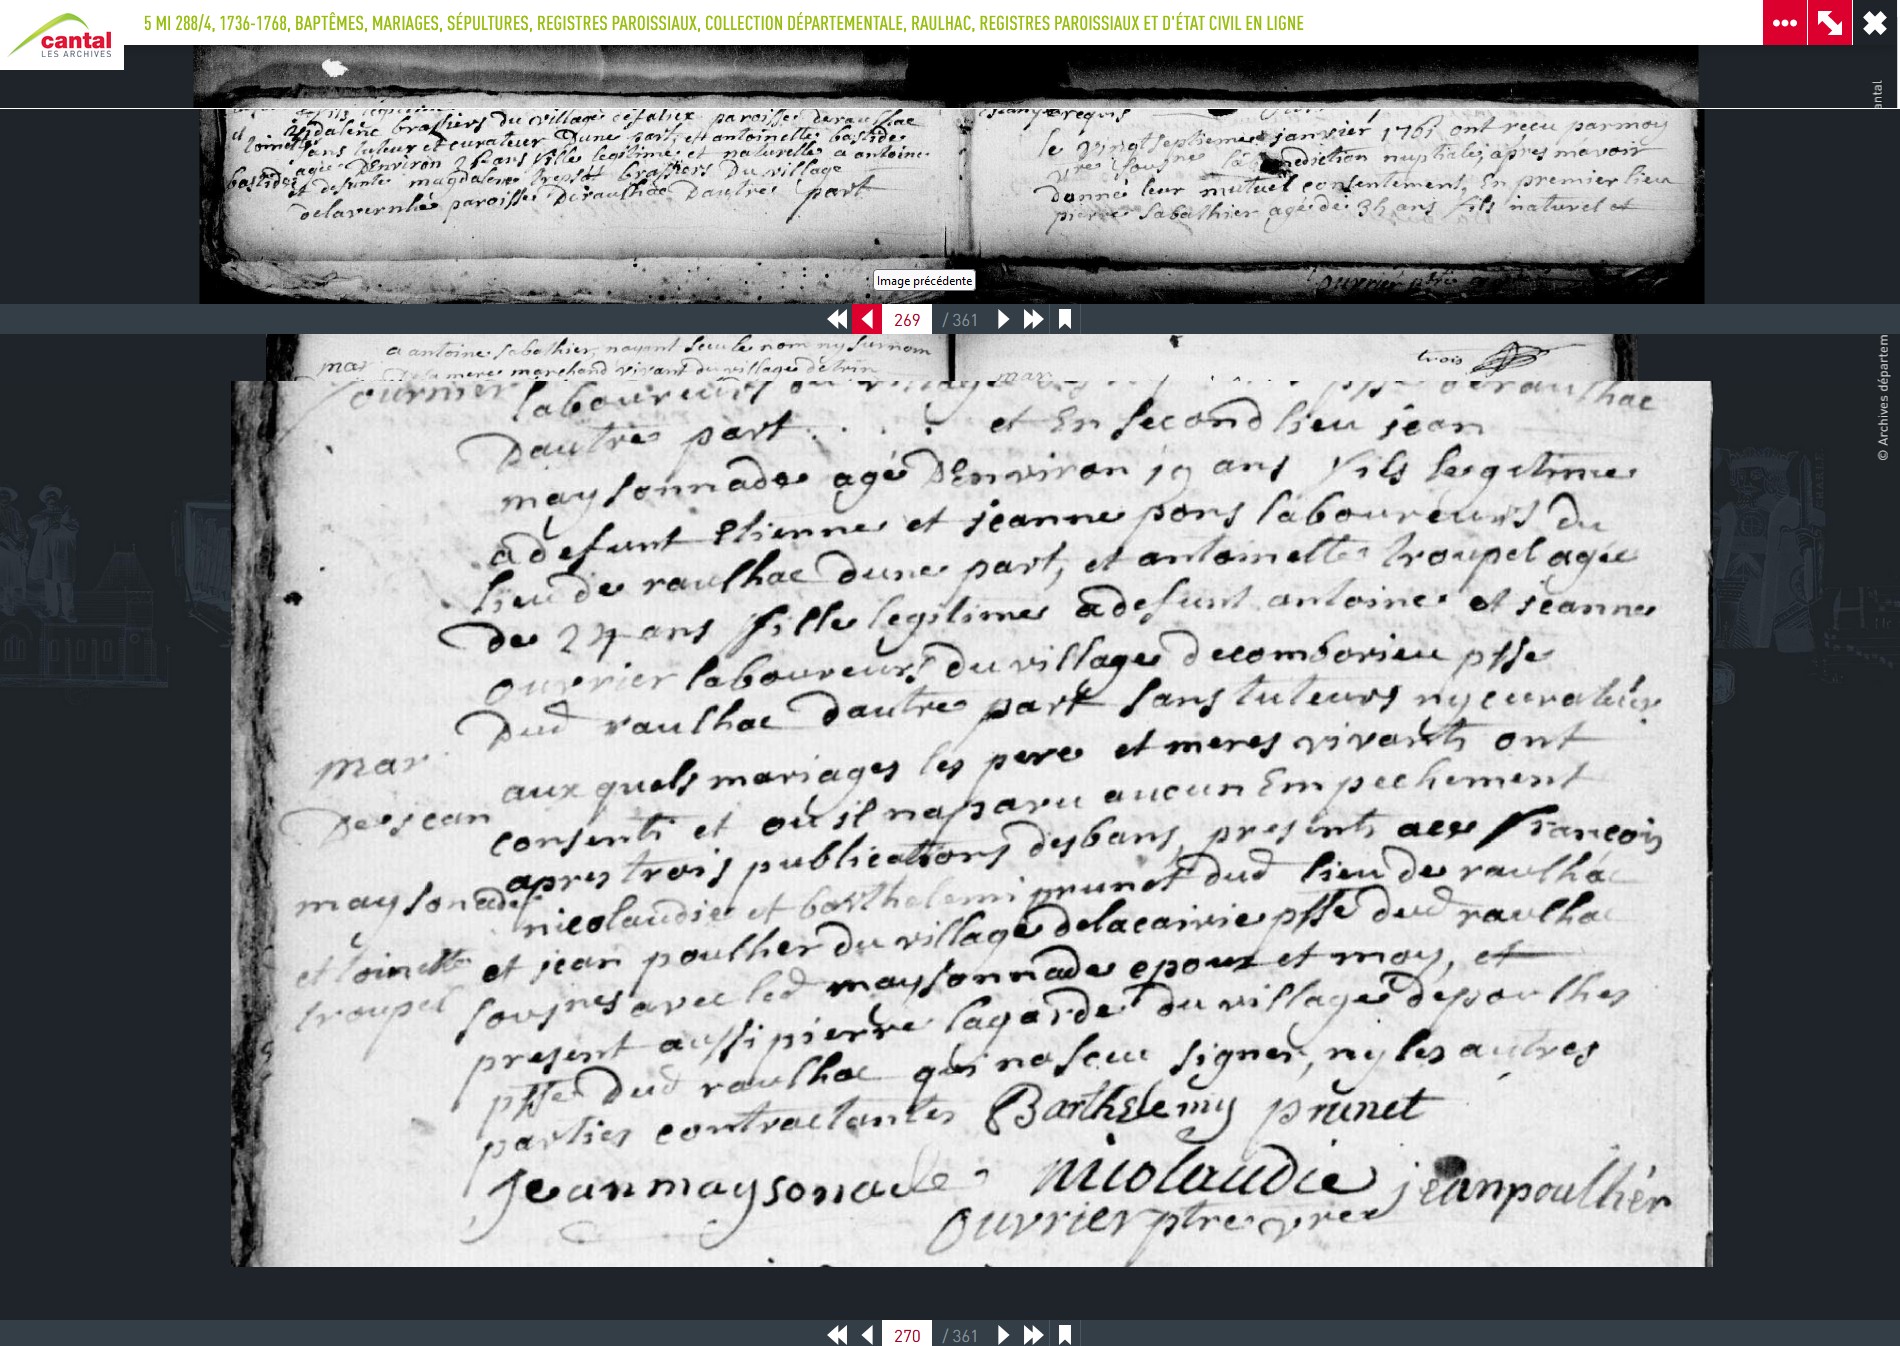 cantal
LES ARCHIVES
5 MI 288/4, 1736-1768, BAPTÊMES, MARIAGES, SÉPULTURES, REGISTRES PAROISSIAUX, COLLECTION DÉPARTEMENTALE, RAULHAC, REGISTRES PAROISSIAUX ET D'ÉTAT CIVIL EN LIGNE
antal
magdalene brassiers du village paroisse deraulhac
sans tuteur et curateur Dune part, et antoinette bastide
agée DEnviron 25 ans fille legitime et naturelle a antoine
bastides
et defunte magdalene brassiers Du village
delavernhé paroisse Deraulhac Dautre part
le vingtseptieme janvier 1761 ont recu parmoy
vre sousne la benediction nuptiale, apres mavoir
donné leur mutuel consentement, En premier lieu
pierre sabathier agé de ans fils naturel et
Image précédente
269 / 361
a antoine sabathier, nayant sceu le nom ny surnom
mar
dela mere marchand vivant du village
trois
mar
© Archives départem
fournier
laboureurs du village psse deraulhac
Dautre part et En second lieu jean
maysonnade agé DEnviron 19 ans fils legitime
adefunt Etienne et jeanne pons laboureurs du
lieu de raulhac dune part, et antoinette troupel agée
de 24 ans fille legitime adefunt antoine et jeanne
ouvrier laboureurs du village decomborieu psse
Dud raulhac dautre part sans tuteurs ny curateur
mar
aux quels mariages les pere et meres vivants ont
De jean
consenti et où il naparu aucun Empechement
apres trois publications desbans, presents françois
maysonade
nicolaudie et barthelemi prunet dud lieu de raulhac
et jean poulher du village delacairie psse dud raulhac
et toinette
sousnes avec led maysonnade epoux et moy, et
troupel
present aussi pierre lagarde du village
psse Dud raulhac qui na sceu signer, ny les autres
parties contractantes Barthelemy prunet
jean maysonade nicolaudie jean poulhèr
ouvrier ptre vre
270 / 361